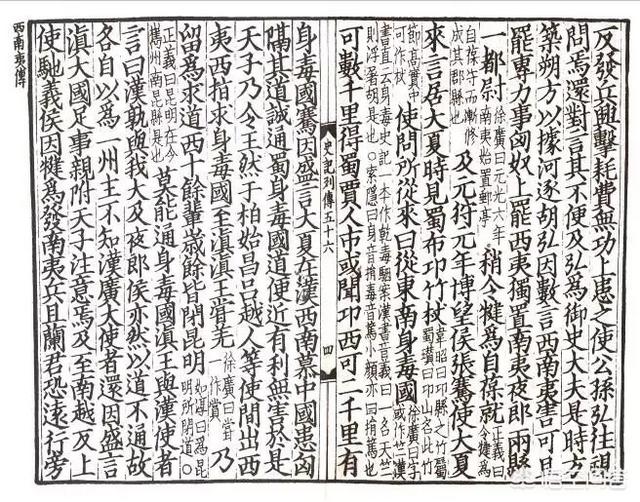 反發兵興擊耗費無功上患之使公孫弘往視
問焉還對言其不便及弘為御史大夫是時方
築朔方以據河逐胡弘因數言西南夷害可且
罷專力事匈奴上罷西夷獨置南夷夜郎兩縣
一都尉徐廣曰元光六年南夷始置郵亭稍令犍為自葆就正義曰令犍為
自葆守而漸修成其郡縣也及元符元年博望侯張騫使大夏
來言居大夏時見蜀布卭竹杖韋昭曰卭縣之竹屬蜀瓚曰卭山名此竹
節高實中可作杖使問所從來曰從東南身毒國徐廣曰字或作竺漢
書直云身毒史記一本作乾毒駰案漢書音義曰一名天竺則浮屠胡是也○索隱曰身音捐毒音篤小顏亦曰捐篤也
可數千里得蜀賈人市或聞卭西可二千里有
史記列傳五十六
四
身毒國騫因盛言大夏在漢西南慕中國患匈
隔其道誠通蜀身毒國道便近有利無害於是
天子乃令王然于柏始昌呂越人等使間出西
夷西指求身毒國至滇滇王嘗羌徐廣曰嘗一作賞乃
留為求道西十餘輩歲餘皆閉昆明如淳曰為昆明所閉道○
正義曰昆明在今雟州南昆縣是也莫能通身毒國滇王與漢使者
言曰漢孰與我大及夜郎侯亦然以道不通故
各自以為一州主不知漢廣大使者還因盛言
滇大國足事親附天子注意焉及至南越反上
使馳義侯因犍為發南夷兵且蘭君恐遠行旁
西南夷傳